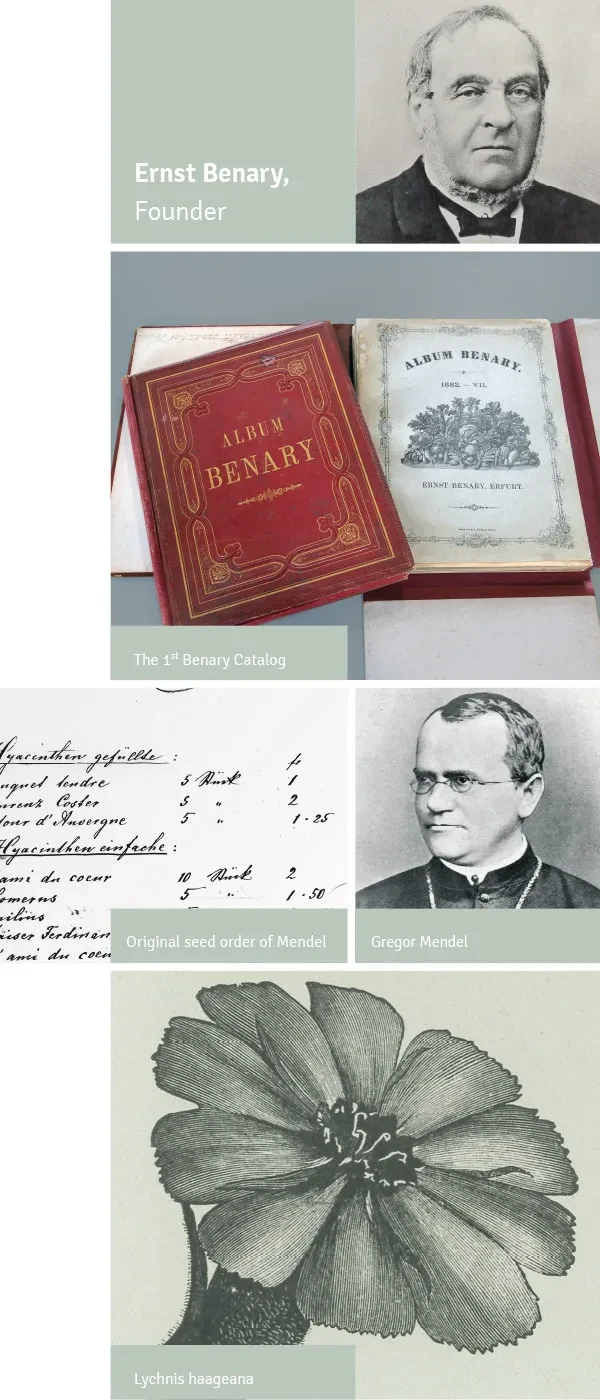 Ernst Benary,
Founder
ALBUM
BENARY
ALBUM BENARY.
1882. — VII.
ERNST BENARY, ERFURT.
The 1st Benary Catalog
Hyacinthen gefüllte :
5 Stück 1
Coster 5 " 2
tour d'Auvergne 5 " 1 · 25
Hyacinthen einfache :
ami du coeur 10 Stück 2
5 " 1 · 50
ami du
Original seed order of Mendel
Gregor Mendel
Lychnis haageana